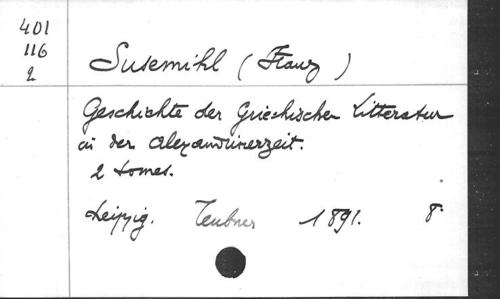 401
116
2
Susemihl (Franz)
Geschichte der Griechischen Litteratur
in der Alexandrinerzeit.
2 tomes.
Leipzig. Teubner 1891. 8°